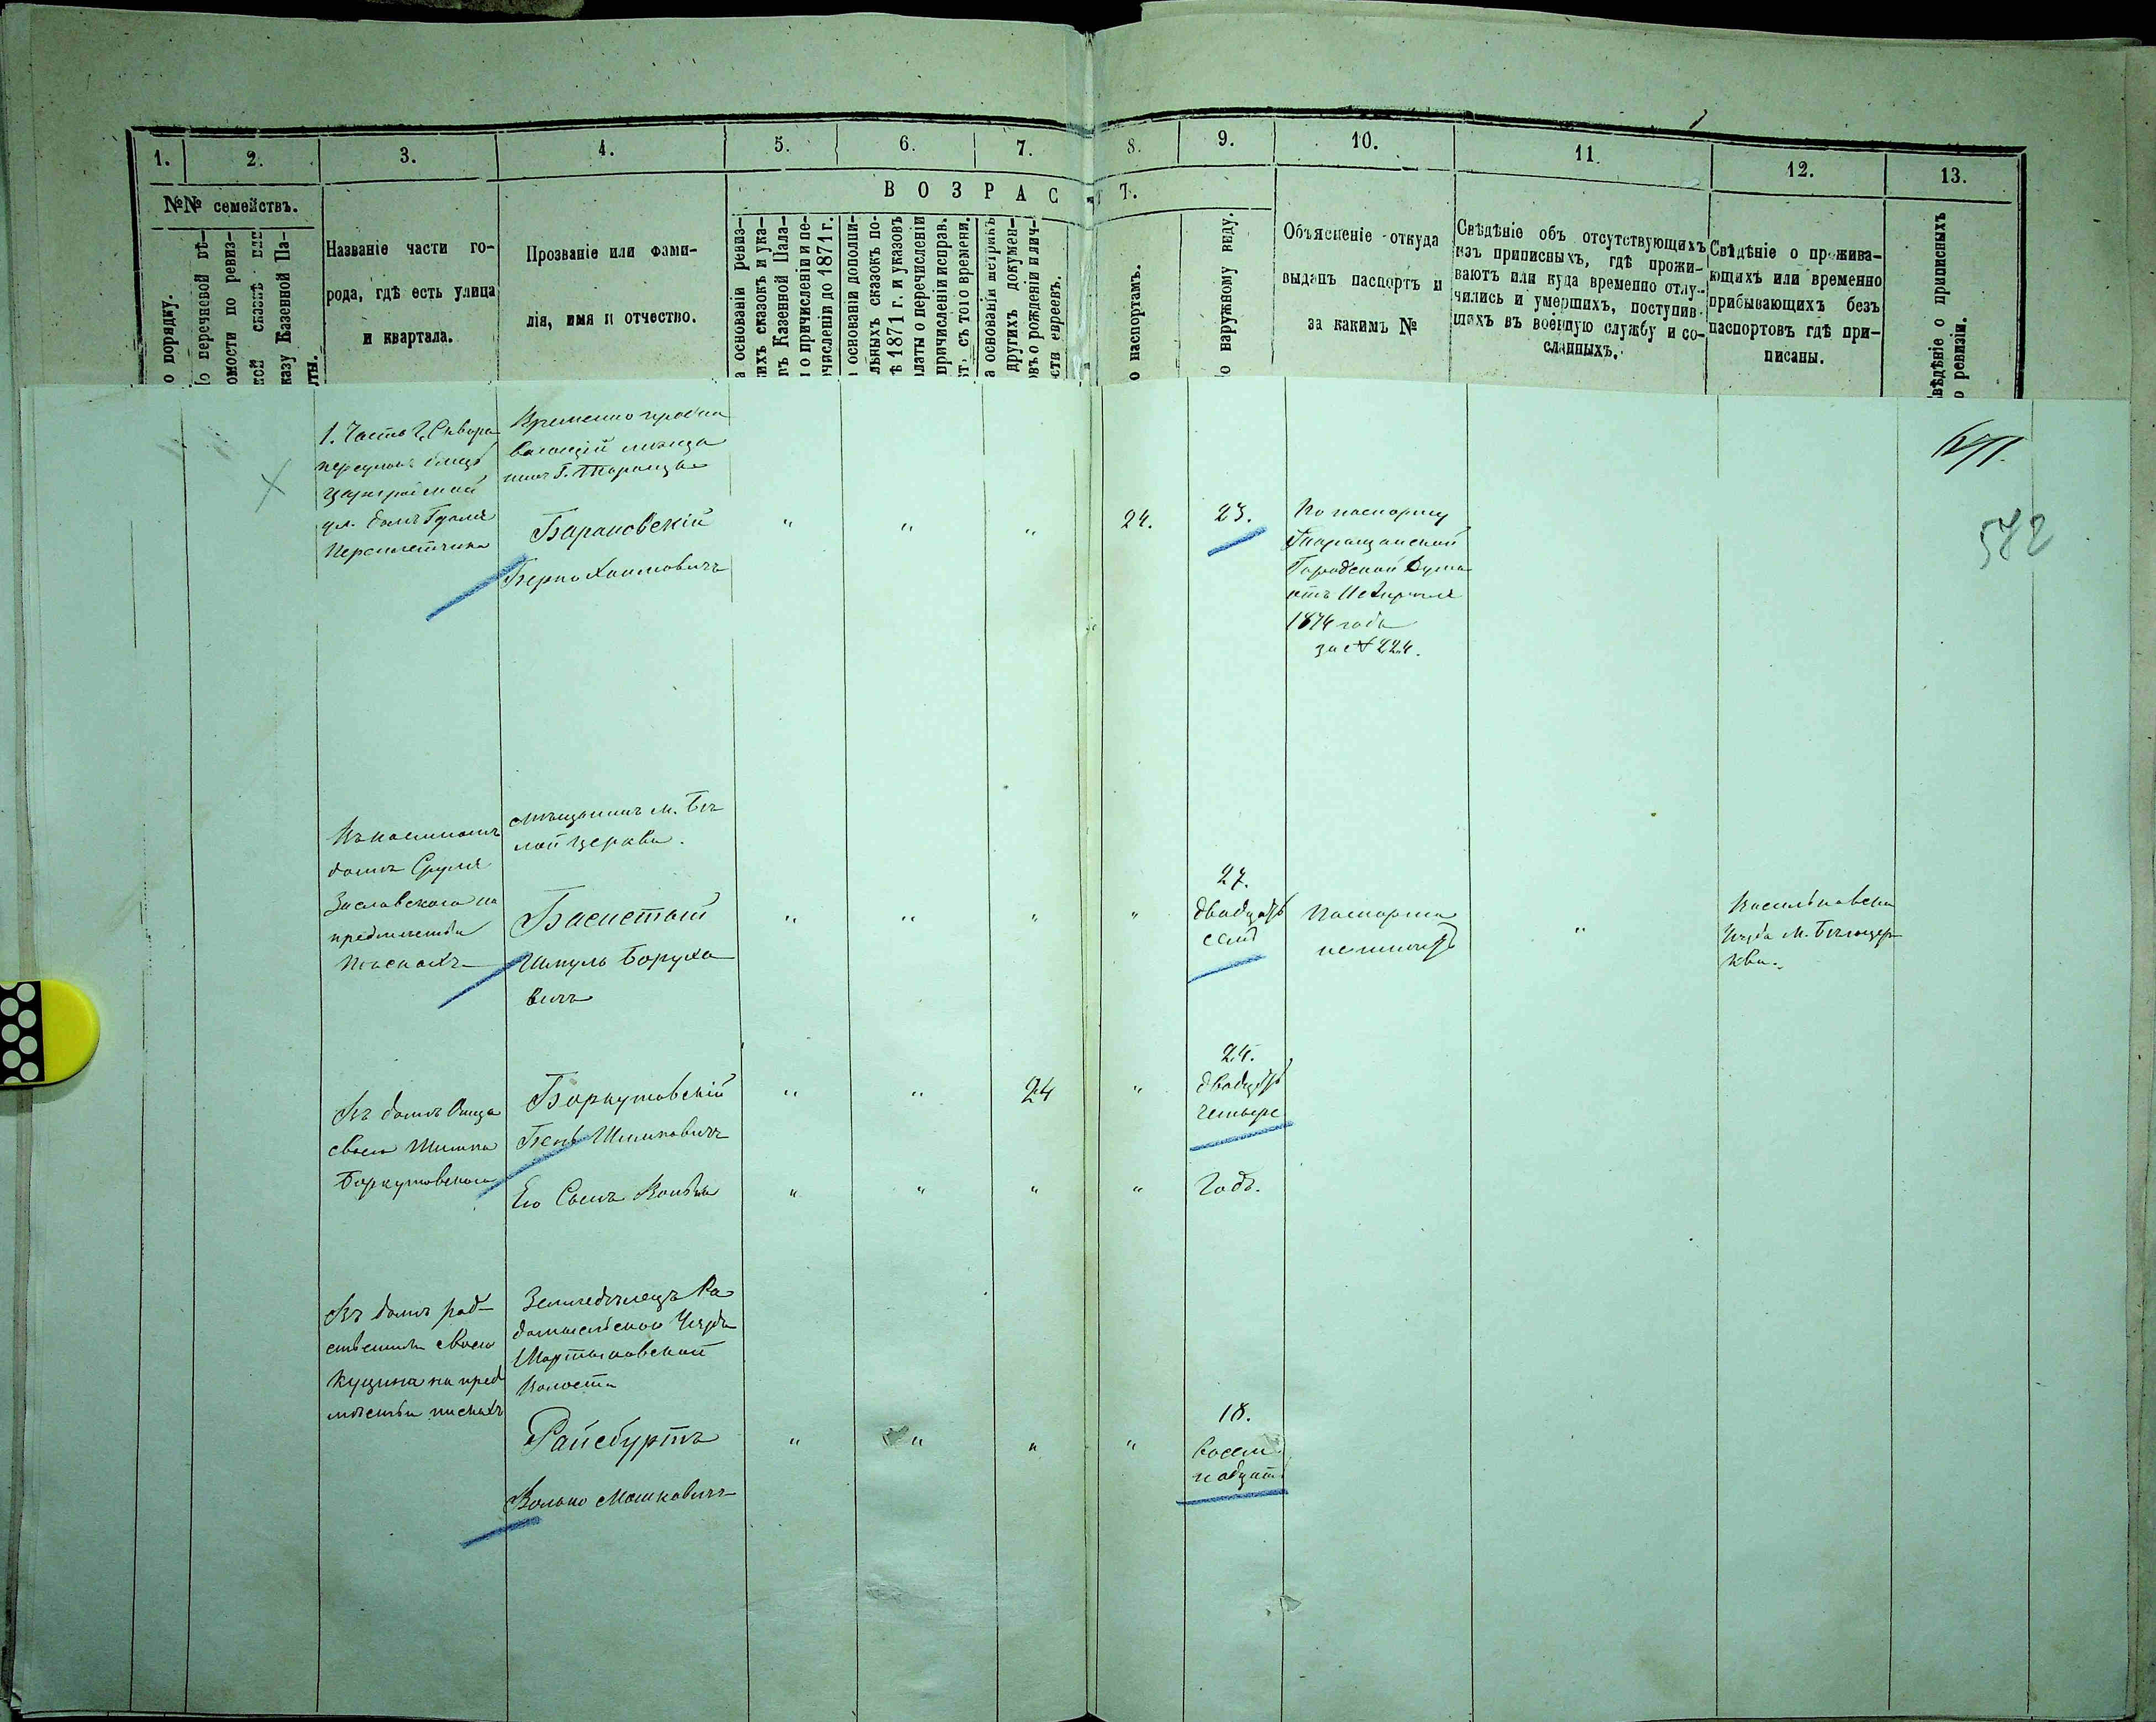 1. 2. 3. 4. 5. 6. 7. 8. 9. 10. 11. 12. 13.
№№ семействъ.
В О З Р А С Т Ъ.
о порядку.
о перечневой вѣ-
омости по ревиз-
ской сказкѣ или
казу Казенной Па-
аты.
Названіе части го-
рода, гдѣ есть улица
и квартала.
Прозваніе или фами-
лія, имя и отчество.
а основаніи ревиз-
кихъ сказокъ и ука-
въ Казенной Пала-
о причисленіи и пе-
численіи до 1871 г.
основаніи дополни-
льныхъ сказокъ по-
ѣ 1871 г. и указовъ
латы о перечисленіи
причисленіи исправ.
ст. съ того времени.
а основаніи метрикъ
другихъ докумен-
овъ о рожденіи и лич-
ости евреевъ.
о паспортамъ.
о наружному виду.
Объясненіе откуда
выданъ паспортъ и
за какимъ №
Свѣдѣніе объ отсутствующихъ
изъ приписныхъ, гдѣ прожи-
ваютъ или куда временно отлу-
чились и умершихъ, поступив-
шихъ въ военную службу и со-
сланныхъ.
Свѣдѣніе о прожива-
ющихъ или временно
прибывающихъ безъ
паспортовъ гдѣ при-
писаны.
вѣдѣніе о приписныхъ
о ревизіи.
582
1. Часть Г. Сквира
ул. домъ
Временно прожи
вающій мѣща
нинъ Г. Таращи
Барановскій
Берко Хаимовичъ
" " " 24. 23.
По паспорту
Таращанской
Городской Думы
отъ Апреля
1874 года
за № 224.
домѣ Сруля
Заславского на
предмѣстьи
Пѣскахъ
Мѣщанинъ м. Бѣ
лой Церкви.
Басистый
Шмуль Борухо
вичъ
" " " "
27.
двадцать
семь
Паспорта
не имѣетъ
"
Васильковска
Уѣзда м. Бѣлоцер
кви.
Въ домѣ Отца
своего Шимка
Боркутовскаго
Боркутовскій
Бень Шимковичъ
" " 24 "
24.
двадцать
четыре
Его Сынъ
" " " " Годъ.
Въ домѣ род-
ственника своего
Куцина на пред
мѣстьи пискахъ
Земледѣлецъ Ра
домысльскаго Уѣзда
Мартыновской
Волости
Райсбуртъ
Волько Мошковичъ
" " " "
18.
восем
надцать